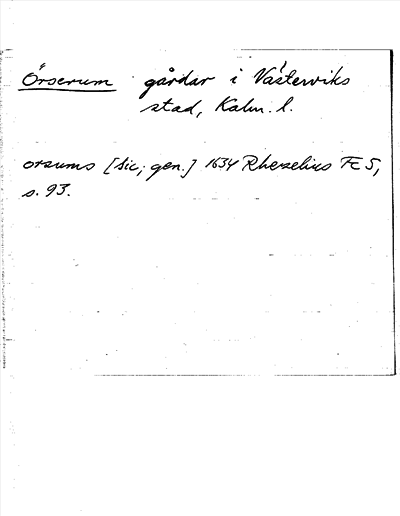 Örserum gårdar i Västerviks
stad, Kalm. l.
orsums [sic; gen.] 1634 Rhezelius Fc 5,
s. 93.